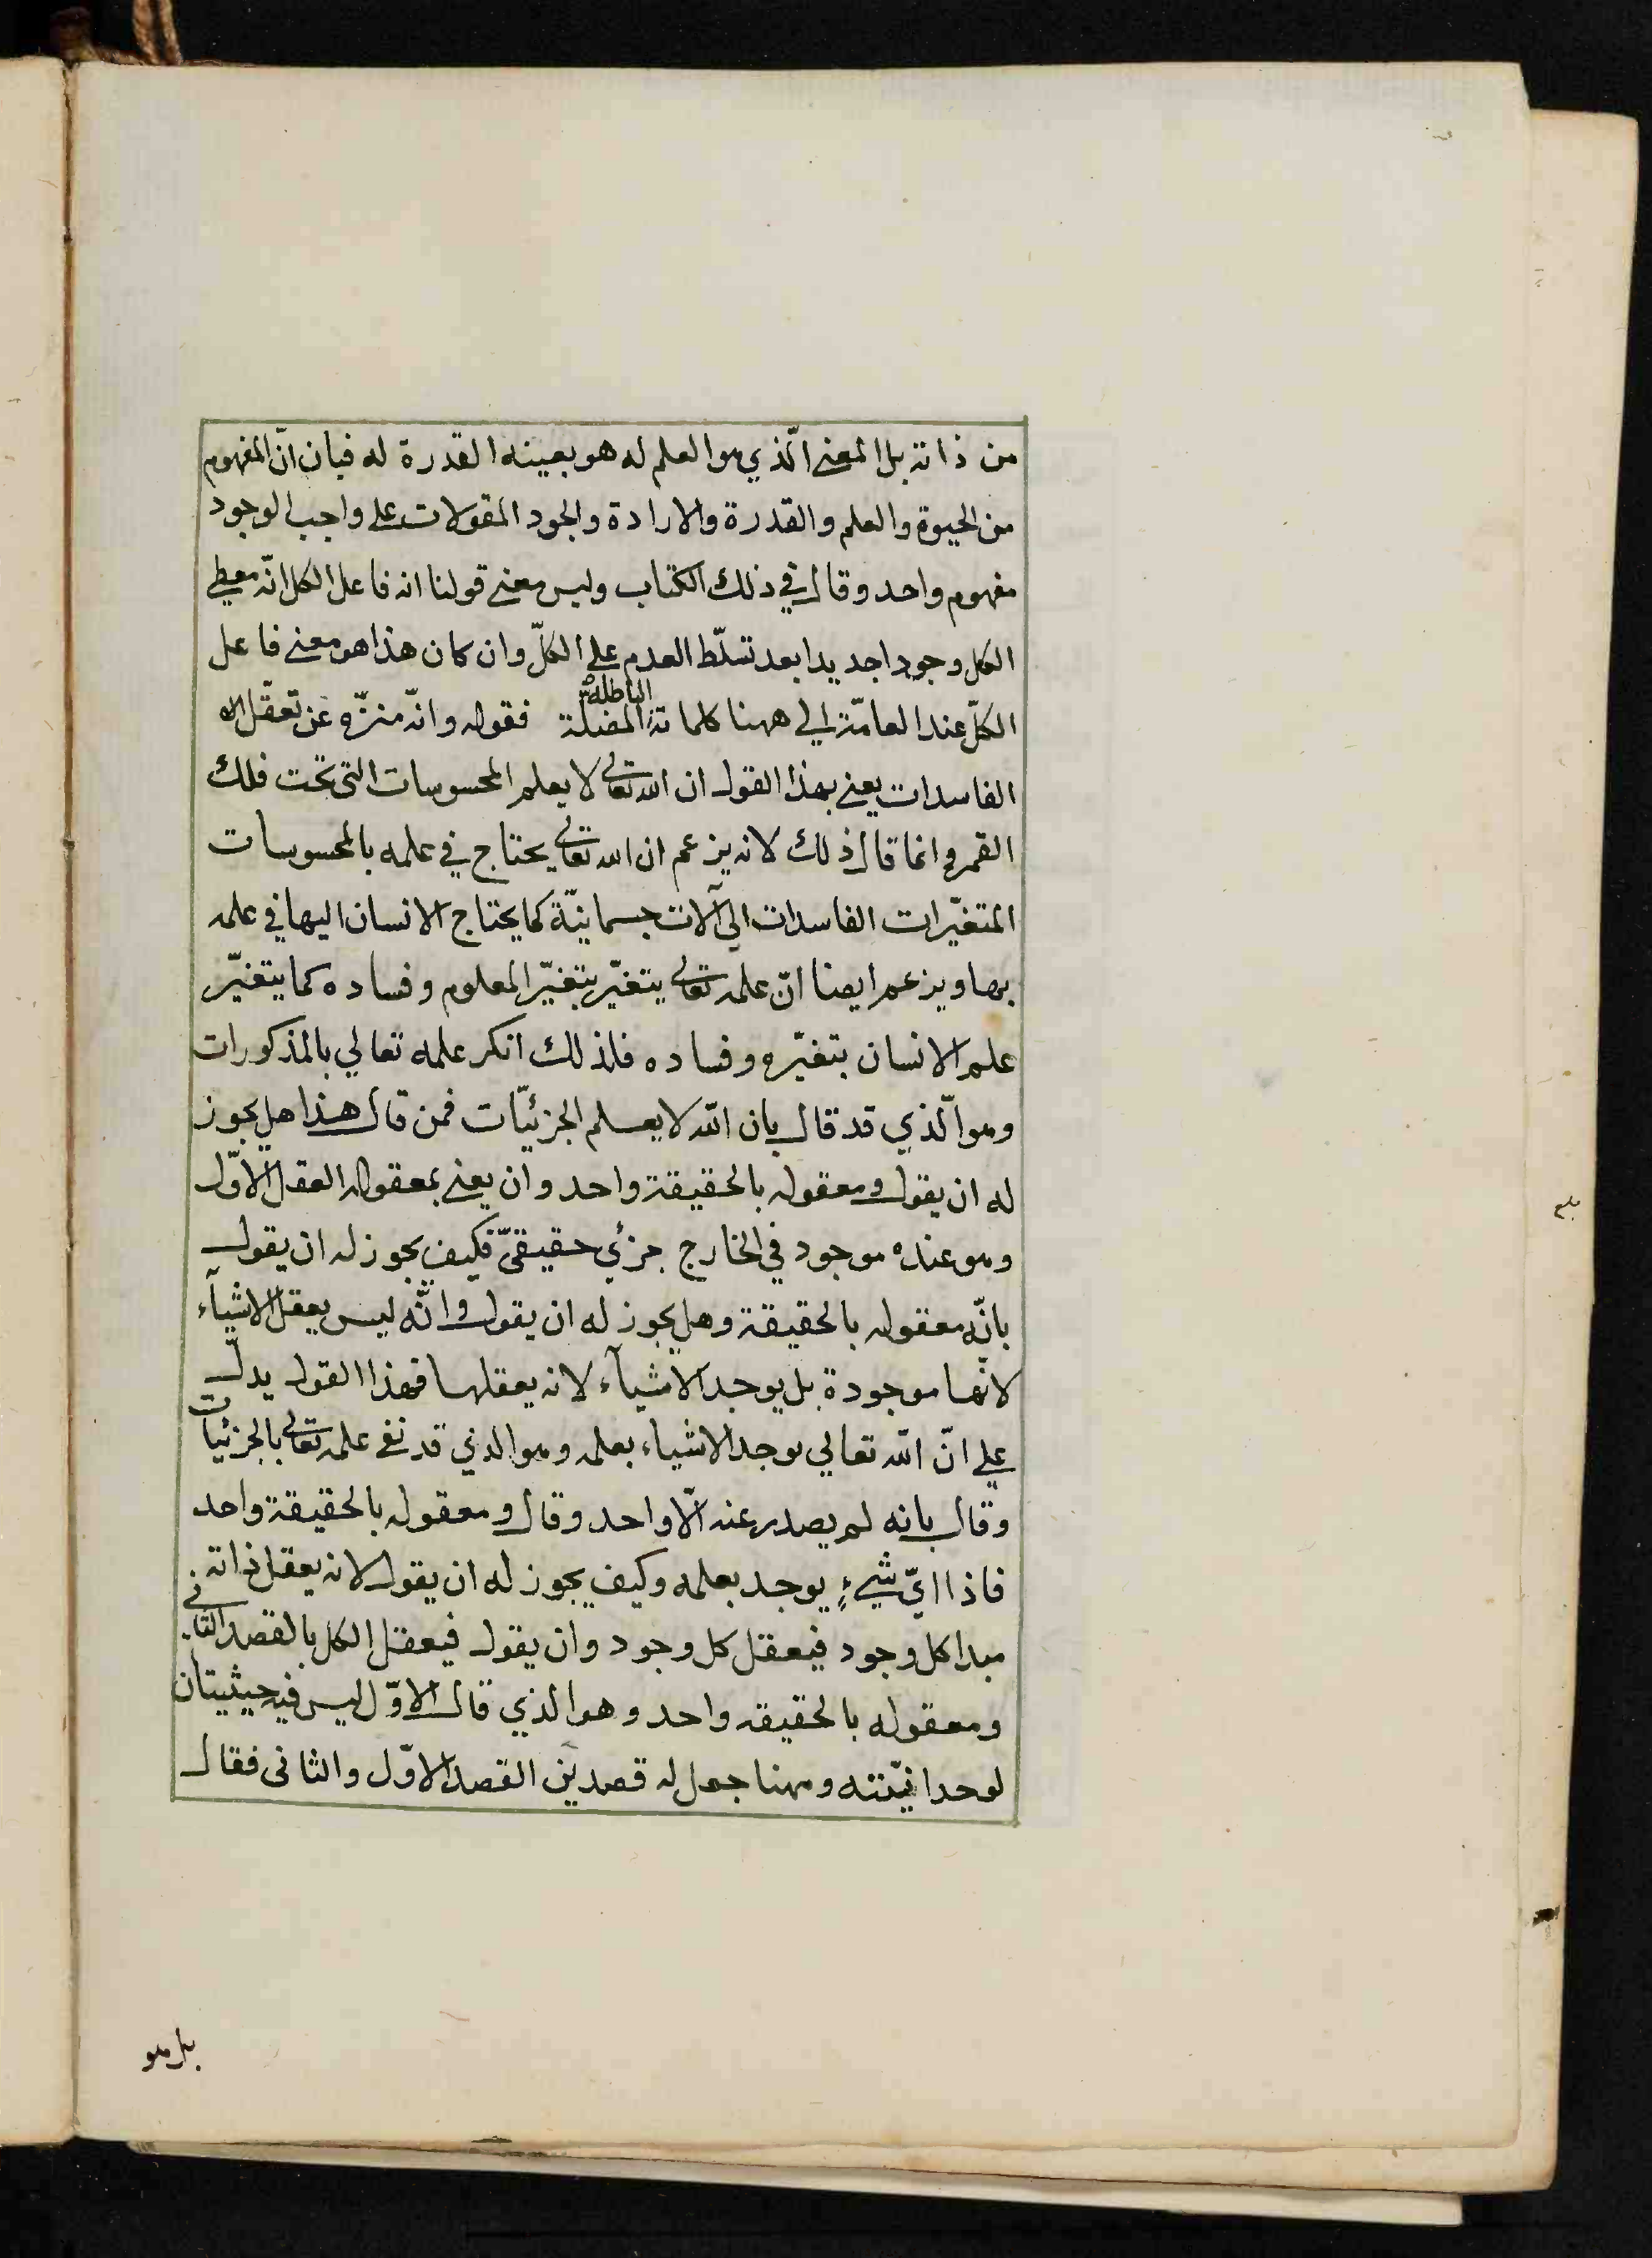 من ذاته بل المعنى الّذي هو العلم له هو بعينه القدرة له فبان انّ المفهوم
من الحيوة والعلم والقدرة والارادة والجود المقولات على واجب الوجود
مفهوم واحد وقال في ذلك الكتاب وليس معنى قولنا انه فاعل الكل انّه معطي
الكل وجودا جديدا بعد تسلّط العدم على الكلّ وان كان هذا هو معنى فاعل
الباطلة
الكلّ عند العامّة الى ههنا كلماته المضلة فقوله وانّه منزّه عن تعقّل الا
الفاسدات يعني بهذا القول ان الله تعالى لا يعلم المحسوسات التي تحت فلك
القمر وانما قال ذلك لانه يزعم ان الله تعالى يحتاج في علمه بالمحسوسات
المتغيّرات الفاسدات الى آلات جسمانيّة كما يحتاج الانسان اليها في علمه
بها ويزعم ايضا انّ علمه تعالى يتغيّر بتغيّر المعلوم وفساده كما يتغيّر
علم الانسان بتغيّره وفساده فلذلك انكر علمه تعالي بالمذكورات
وهو الّذي قد قال بان الله لا يعلم الجزئيّات فمن قال هذا هل يجوز
له ان يقول ومعقوله بالحقيقة واحد وان يعني بمعقوله العقل الاوّل
وهو عنده موجود في الخارج جزئي حقيقيّ فكيف يجوز له ان يقول
بانّه معقوله بالحقيقة وهل يجوز له ان يقول وانّه ليس يعقل الاشيآء
لانّها موجودة بل يوجد الاشيآء لانه يعقلها فهذا القول يدلّ
علي انّ الله تعالي يوجد الاشياء بعلمه وهو الذي قد نفى علمه تعالى بالجزئيات
وقال بانه لم يصدر عنه الّا واحد وقال ومعقوله بالحقيقة واحد
فاذا ايّ شيءٍ يوجد بعلمه وكيف يجوز له ان يقول لانه يعقل ذاته
مبدا كل وجود فيعقل كل وجود وان يقول فيعقل الكل بالقصد الثاني
ومعقوله بالحقيقه واحد وهو الذي قال الاوّل ليس فيه حيثيتان
لوحدانيّته وههنا جعل له قصدين القصد الاوّل والثاني فقال
بل هو